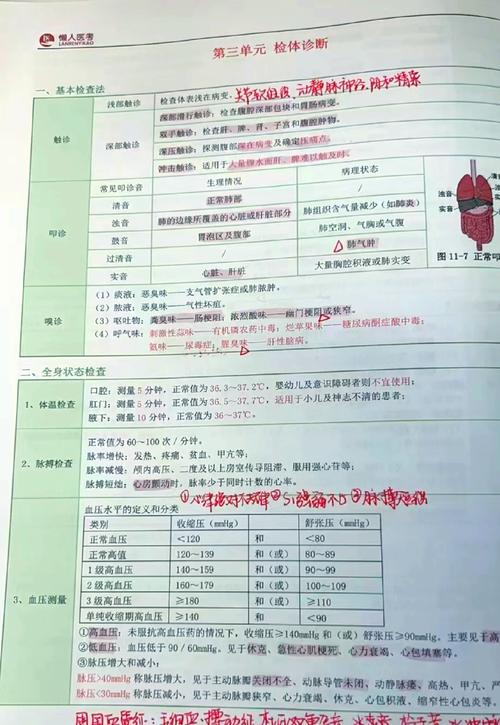 懒人医考
LANRENYIKAO
第三单元 检体诊断
一、基本检查法
触诊
浅部触诊
检查体表浅在病变。关节软组织,动静脉神经,阴和精索
深部触诊
深部滑行触诊:检查腹腔深部包块和胃肠病变。
双手触诊:检查肝、脾、肾、子宫和腹腔肿物。
深压触诊:探测腹部深在病变及确定压痛点。
冲击触诊:适用于大量腹水而肝、脾难以触及时。
叩诊
常见叩诊音 生理情况 病理状态
清音 正常肺部
浊音 肺的边缘所覆盖的心脏或肝脏部分 肺组织含气量减少(如肺炎)
鼓音 胃泡区及腹部 肺空洞、气胸或气腹
过清音 肺气肿
实音 心脏、肝脏 大量胸腔积液或肺实变
清音
浊音
实音
鼓音
图 11-7 正常叩
嗅诊
(1)痰液:恶臭味——支气管扩张症或肺脓肿。
(2)脓液:恶臭味——气性坏疽。
(3)呕吐物:粪臭味——肠梗阻;浓烈酸味——幽门梗阻或狭窄。
(4)呼气味:刺激性蒜味——有机磷农药中毒;烂苹果味——糖尿病酮症酸中毒;
氨味——尿毒症;腥臭味——肝性脑病。
二、全身状态检查
1、体温检查
口腔:测量 5 分钟,正常值为 36.3~37.2℃,婴幼儿及意识障碍者则不宜使用;
肛门:测量 5 分钟,正常值为 36.5~37.7℃,适用于小儿及神志不清的患者;
腋下:测量 10 分钟,正常值为 36~37℃。
2、脉搏检查
正常值为 60~100 次/分钟。
脉率增快:发热、疼痛、贫血、甲亢等;
脉率减慢:颅内高压、二度及以上房室传导阻滞、服用强心苷等;
脉搏短绌:心房颤动时,脉率少于同时计数的心率。
①心律绝对不律② S₁强弱不一 ③脉搏短绌
3、血压测量
血压水平的定义和分类
类别 收缩压(mmHg) 舒张压(mmHg)
正常血压 <120 和 <80
正常高值 120~139 和(或) 80~89
1 级高血压 140~159 和(或) 90~99
2 级高血压 160~179 和(或) 100~109
3 级高血压 ≥180 和(或) ≥110
单纯收缩期高血压 ≥140 和 <90
①高血压:未服抗高血压药的情况下,收缩压≥140mmHg 和(或)舒张压≥90mmHg。主要见于高
②低血压:血压低于 90/60mmHg。见于休克、急性心肌梗死、心力衰竭、心包填塞等;
③脉压增大和减小:
脉压>40mmHg 称脉压增大,见于主动脉瓣关闭不全、动脉导管未闭、动静脉瘘、高热、甲亢、
脉压<30mmHg 称脉压减小,见于主动脉瓣狭窄、心力衰竭、休克、心包积液、缩窄性心包炎
周围血管征: